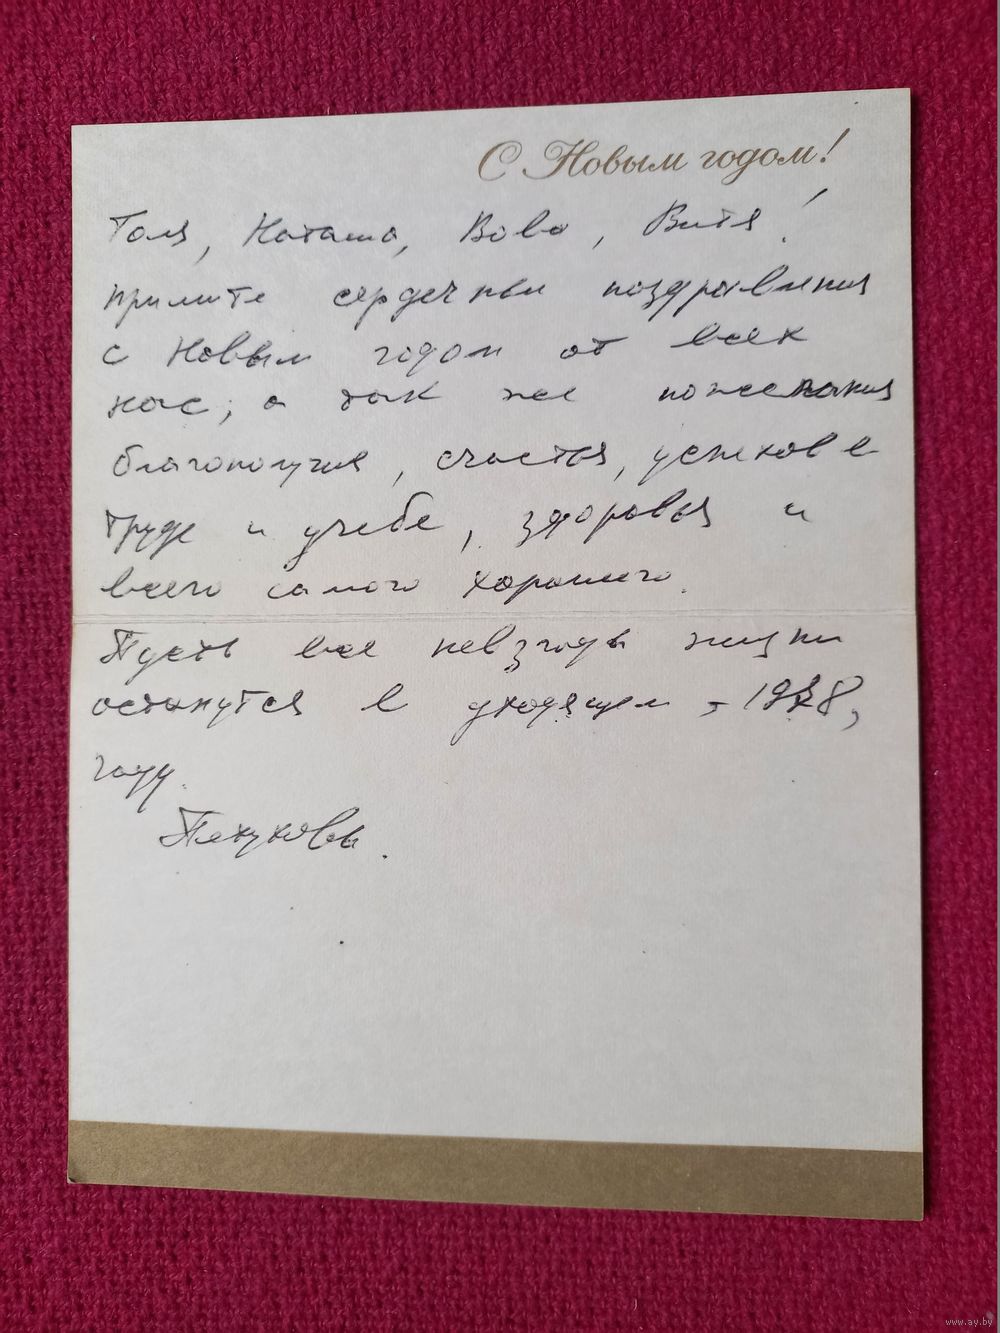 С Новым годом!
Толя, Наташа, Вова, Витя!
Примите сердечные поздравления
с Новым годом от всех
нас, а так же пожелания
благополучия, счастья, успехов в
труде и учебе, здоровья и
всего самого хорошего.
Пусть все невзгоды жизни
останутся в уходящем, 1978,
году.
www.ay.by